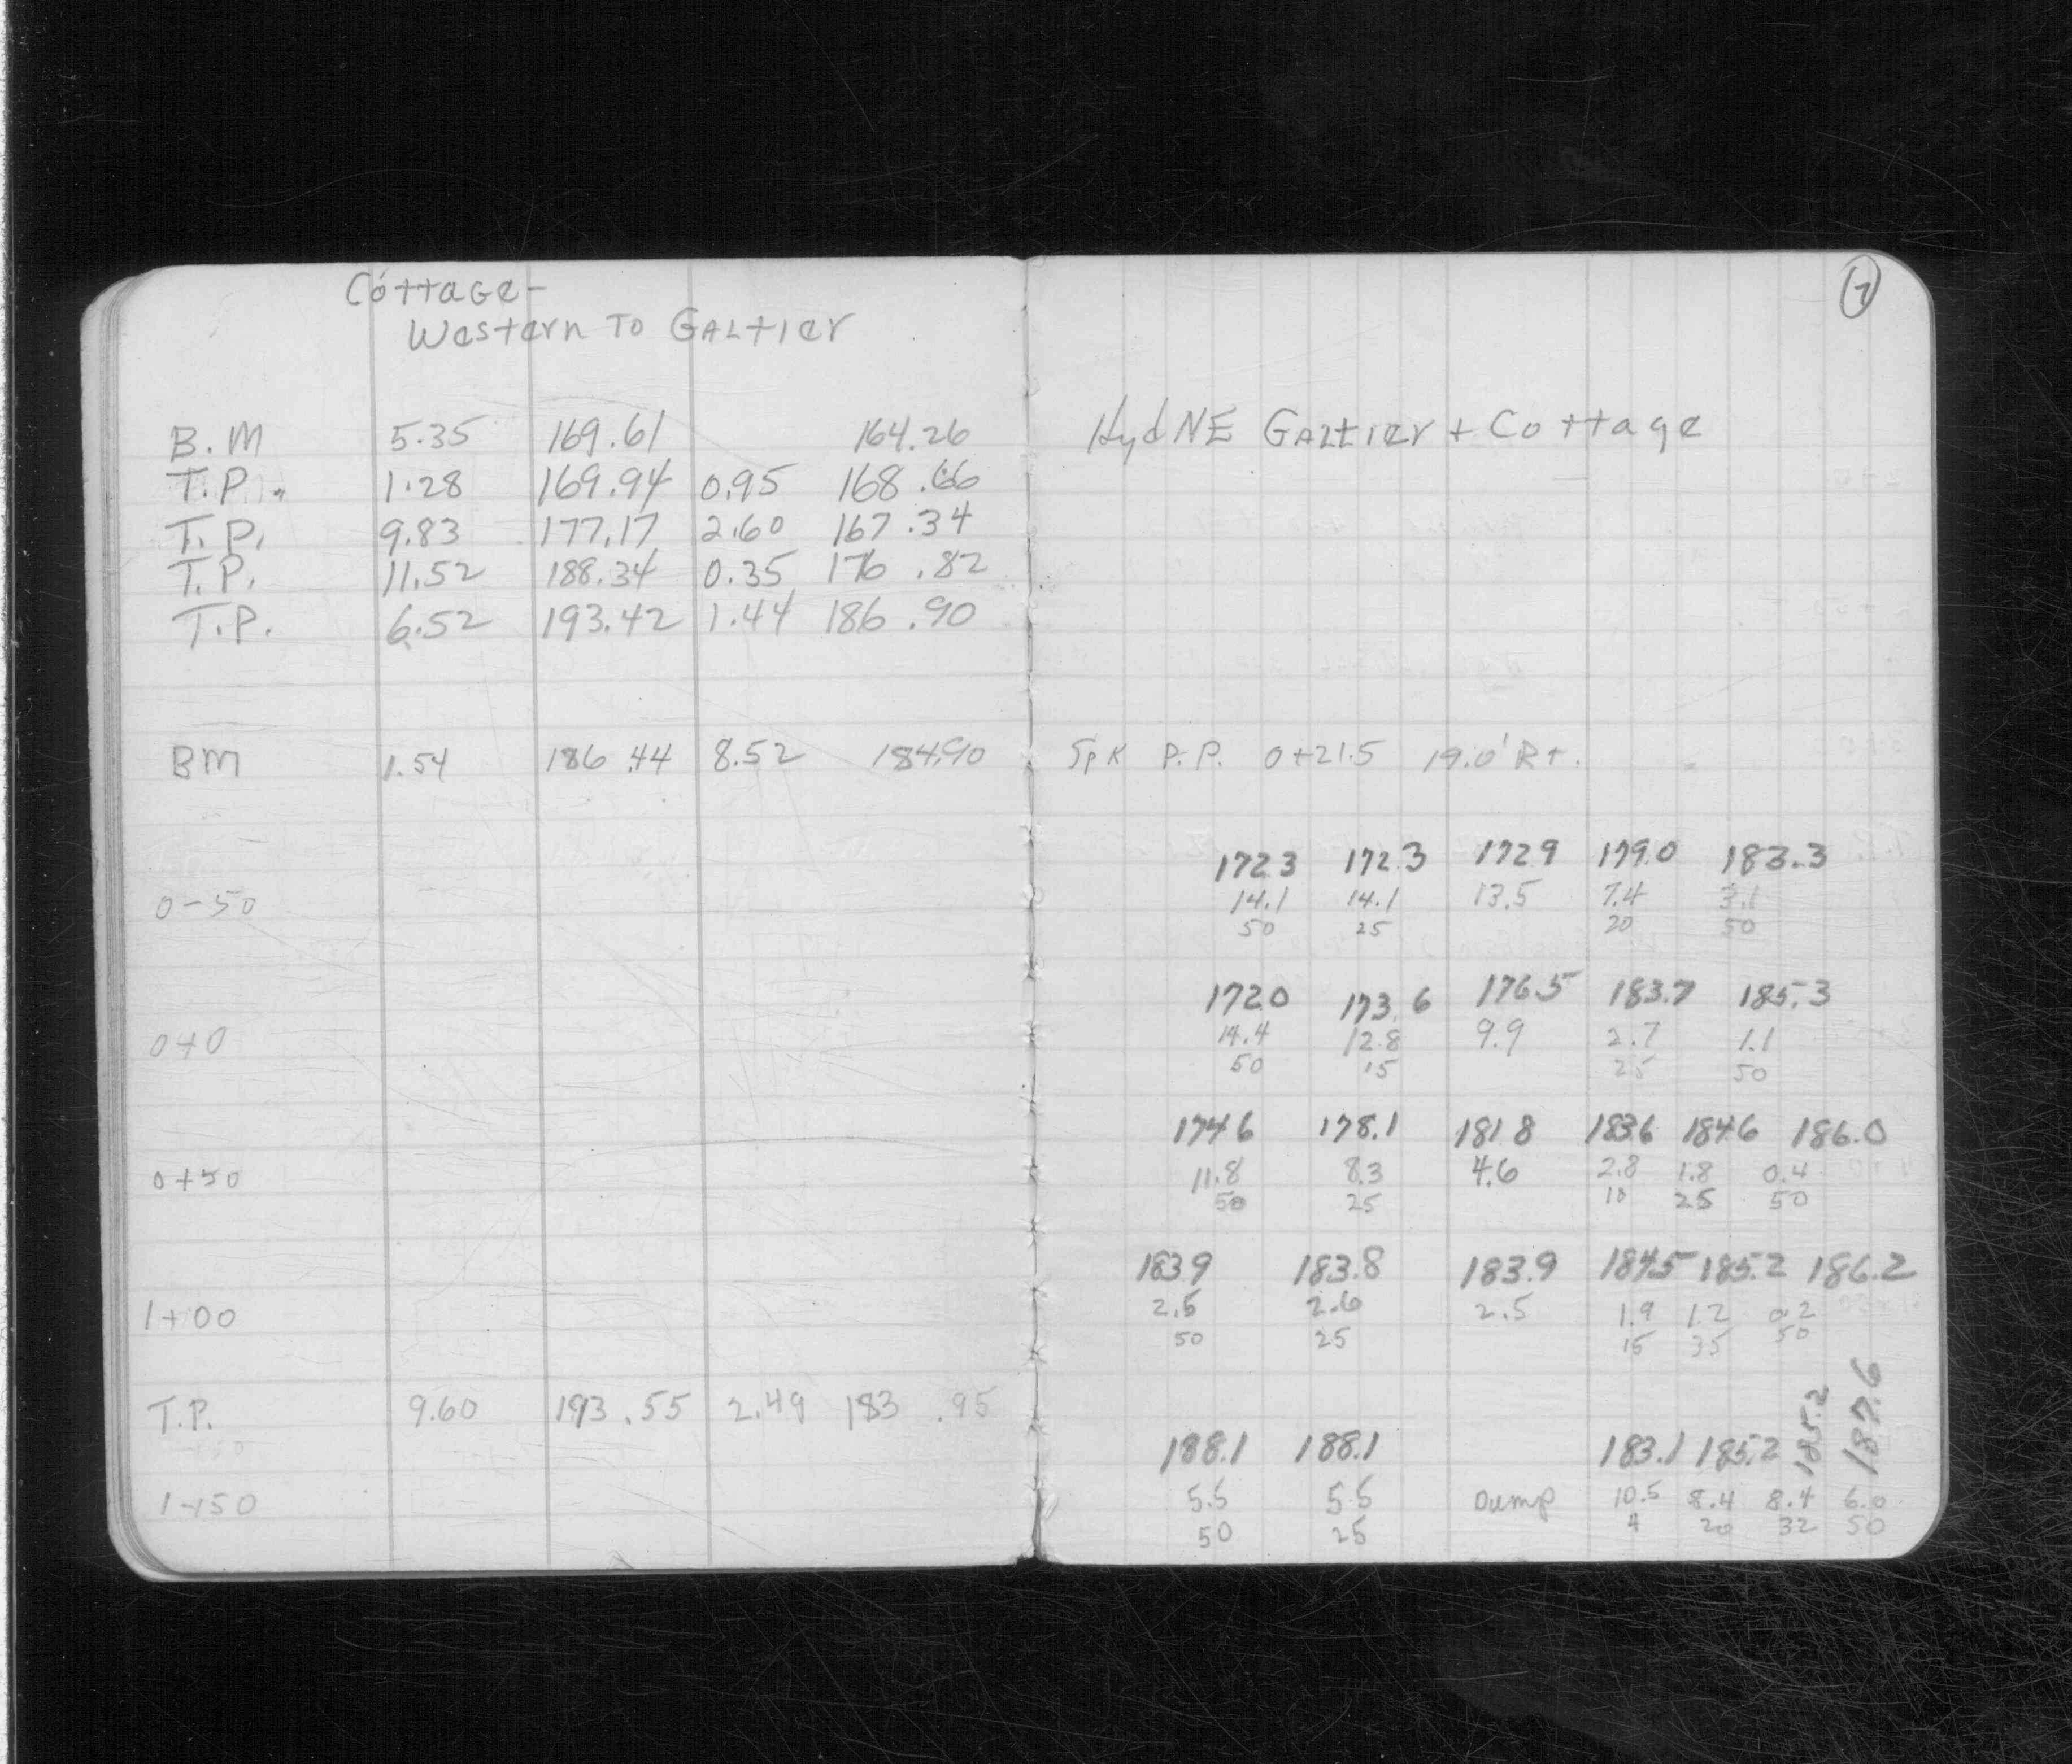 Cottage-
Western To Galtier
7
B.M 5.35 169.61 164.26 Hyd NE Galtier + Cottage
T.P. 1.28 169.94 0.95 168.66
T.P. 9.83 177.17 2.60 167.34
T.P. 11.52 188.34 0.35 176.82
T.P. 6.52 193.42 1.44 186.90
BM 1.54 186.44 8.52 184.90 Spk P.P. 0+21.5 19.0' Rt.
172.3 172.3 172.9 179.0 183.3
0-50 14.1 14.1 13.5 7.4 3.1
50 25 20 50
172.0 173.6 176.5 183.7 185.3
0+0 14.4 12.8 9.9 2.7 1.1
50 15 25 50
174.6 178.1 181.8 183.6 184.6 186.0
0+50 11.8 8.3 4.6 2.8 1.8 0.4
50 25 10 25 50
183.9 183.8 183.9 184.5 185.2 186.2
1+00 2.5 2.6 2.5 1.9 1.2 0.2
50 25 15 35 50
T.P. 9.60 193.55 2.49 183.95
188.1 188.1 183.1 185.2 185.2 187.6
1+50 5.5 5.5 Dump 10.5 8.4 8.4 6.0
50 25 4 20 32 50